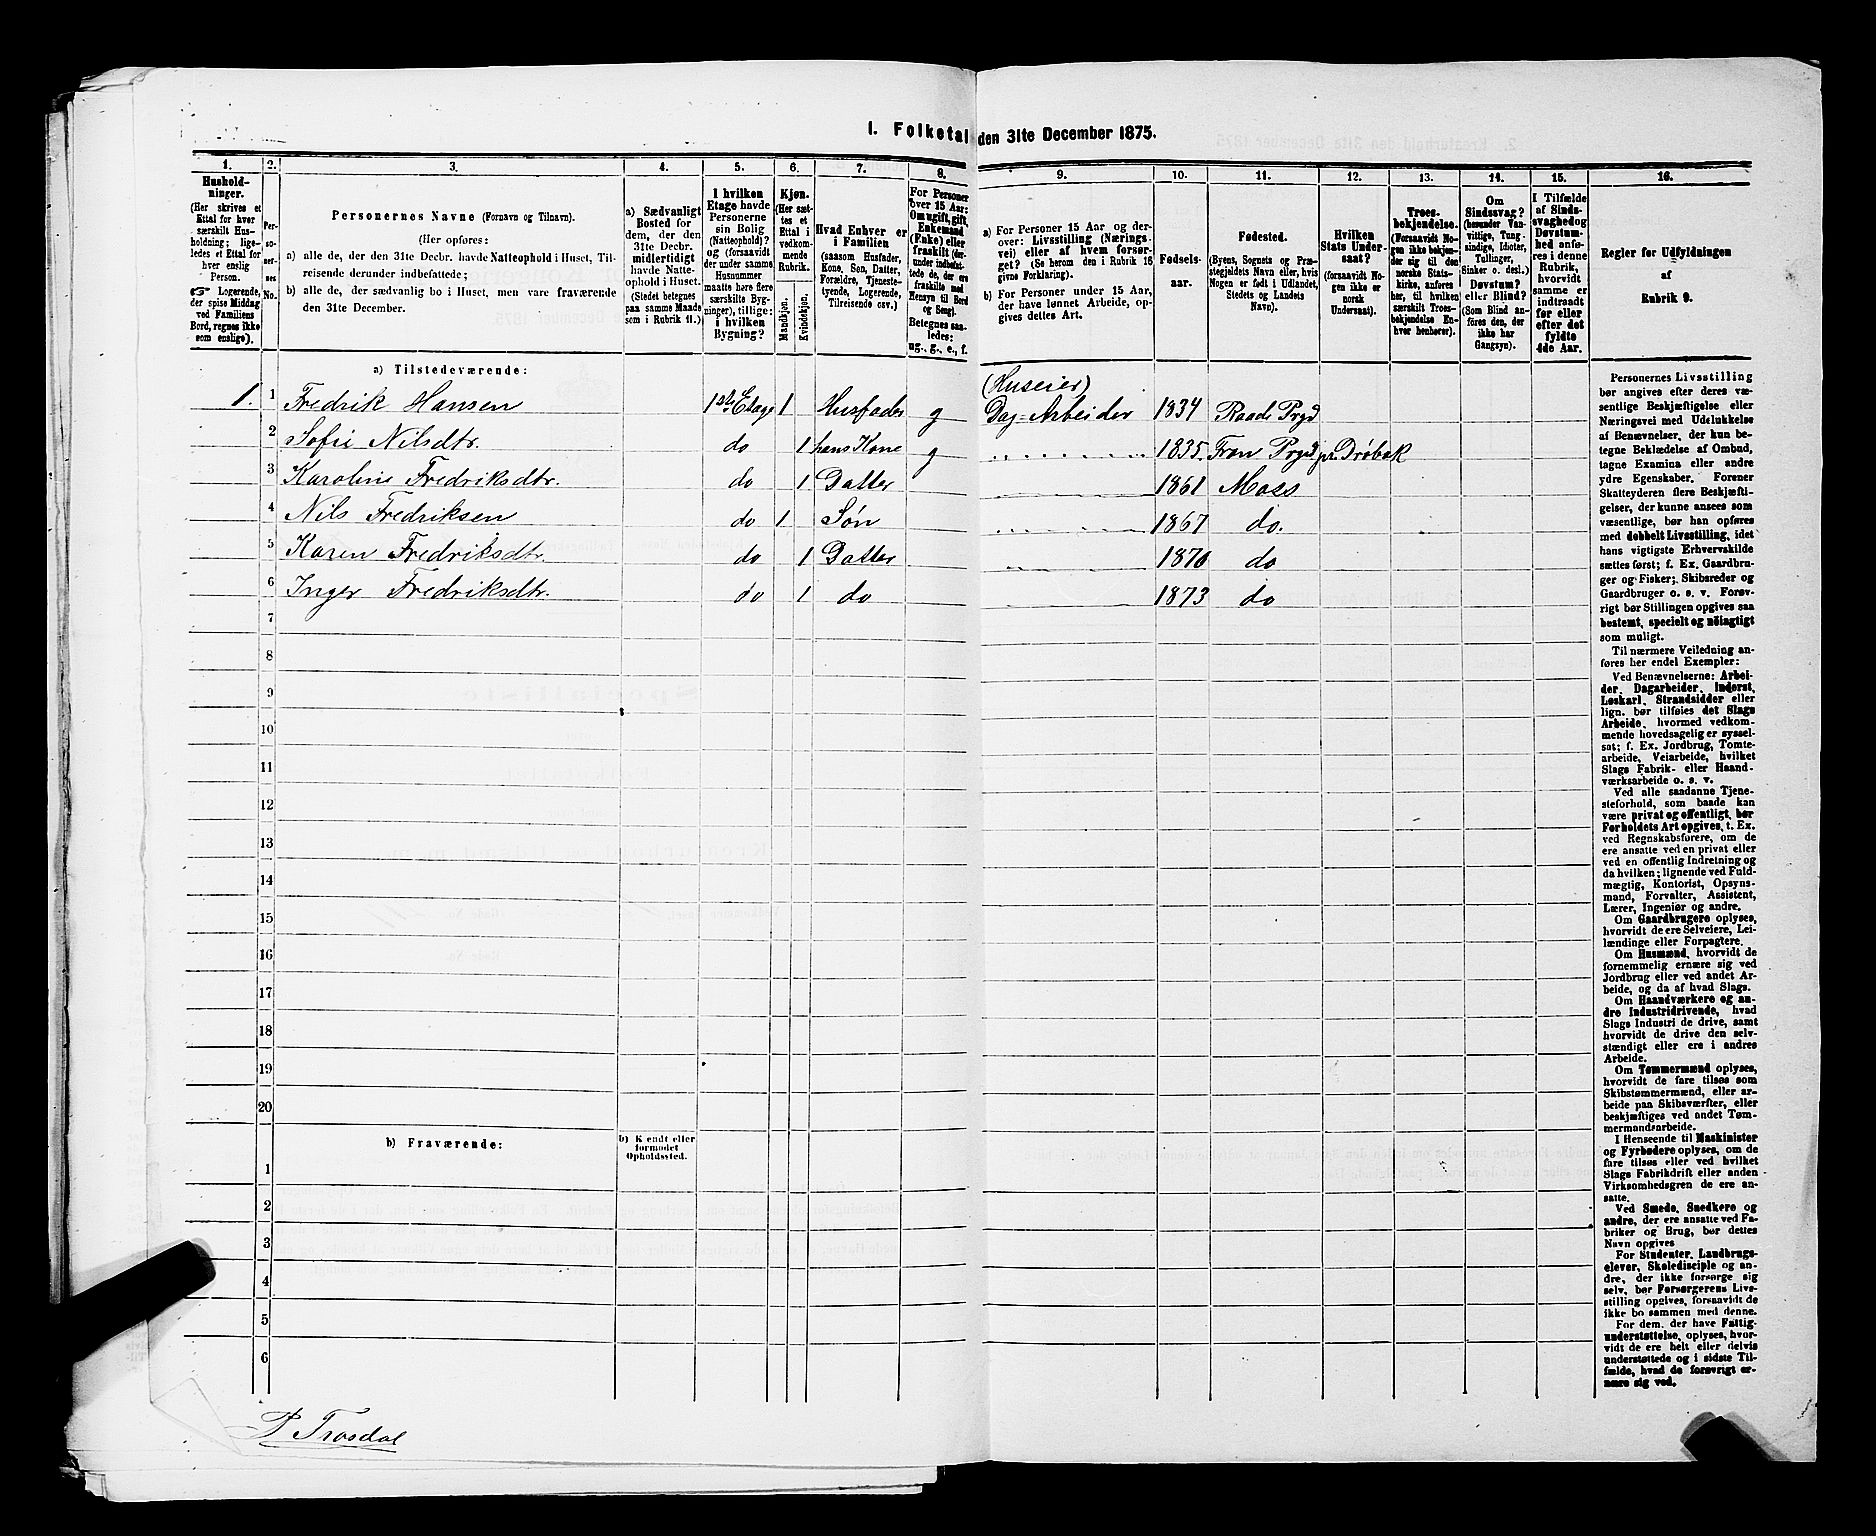 I. Folketal den 31te December 1875.
1. 2. 3. 4. 5. 6. 7. 8. 9. 10. 11. 12. 13. 14. 15. 16.
Hushold-
ninger.
(Her skrives et
Ettal for hver
særskilt Hus-
holdning; lige-
ledes et Ettal for
hver enslig
Person.
☞ Logerende,
der spise Middag
ved Familiens
Bord, regnes ikke
som enslige).
Per-
so-
ner-
nes
No.
Personernes Navne (Fornavn og Tilnavn).
(Her opføres:
a) alle de, der den 31te Decbr. havde Natteophold i Huset, Til-
reisende derunder indbefattede;
b) alle de, der sædvanlig bo i Huset, men vare fraværende
den 31te December.
a) Sædvanligt
Bosted for
dem, der den
31te Decbr.
midlertidigt
havde Natte-
ophold i Huset.
(Stedet betegnes
paa samme Maade
som i Rubrik 11.)
I hvilken
Etage havde
Personerne
sin Bolig
(Natteophold)?
og (forsaavidt
der under samme
Husnummer
maatte høre flere
særskilte Byg-
ninger), tillige:
i hvilken
Bygning?
Kjøn.
(Her sæt-
tes et
Ettal i
vedkom-
mende
Rubrik.
Mandkjøn.
Kvindekjøn.
Hvad Enhver er
i Familien
(saasom Husfader,
Kone, Søn, Datter,
Forældre, Tjeneste-
tyende, Logerende,
Tilreisende osv.)
For Personer
over 15 Aar:
Om ugift, gift,
Enkemand
(Enke) eller
fraskilt (der-
under indbefat-
tede de, der ere
fraskilte med
Hensyn til Bord
og Seng).
Betegnes saa-
ledes:
ug., g., e., f.
a) For Personer 15 Aar og der-
over: Livsstilling (Nærings-
vei) eller af hvem forsør-
get? (Se herom den i Rubrik 16
givne Forklaring).
b) For Personer under 15 Aar,
der have lønnet Arbeide, op-
gives dettes Art.
Fødsels-
aar.
Fødested.
(Byens, Sognets og Præ-
stegjeldets Navn eller, hvis
Nogen er født i Udlandet,
Stedets og Landets
Navn).
Hvilken
Stats Under-
saat?
(forsaavidt No-
gen ikke er
norsk
Undersaat).
Troes-
bekjendelse.
(Forsaavidt No-
gen ikke bekjen-
der sig til den
norske Stats-
kirke, anføres
her, til hvilken
særskilt Troes-
bekjendelse En-
hver henhører).
Om
Sindssvag?
(herunder Van-
vittige, Tung-
sindige, Idioter,
Tullinger,
Sinker o. desl.)
Døvstum?
eller Blind?
(Som Blind an-
føres den, der
ikke har
Gangsyn).
I Tilfælde
af Sinds-
svaghed og
Døvstum-
hed anfø-
res i denne
Rubrik,
hvorvidt
samme er
indtraadt
før eller
efter det
fyldte
4de Aar.
Regler for Udfyldningen
af
Rubrik 9.
a) Tilstedeværende:
(Huseier)
1. 1 Fredrik Hansen 1ste Etage 1 Husfader g Dag-Arbeider 1834 Raade Prgd
2 Sofie Nilsdtr. do 1 hans Kone g 1835. Fron Prgd pr. Drøbak
3 Karoline Fredriksdtr. do 1 Datter 1861 Moss
4 Nils Fredriksen do 1 Søn 1867 do.
5 Karen Fredriksdtr. do 1 Datter 1870 do
6 Inger Fredriksdtr. do 1 do 1873 do
7
8
9
10
11
12
13
14
15
16
17
18
19
20
b) Fraværende:
b) Kjendt eller
formodet
Opholdssted.
1
2
3
4
5
6
Personernes Livsstilling
bør angives efter deres væ-
sentlige Beskjæftigelse eller
Næringsvei med Udelukkelse
af Benævnelser, der kun be-
tegne Beklædelse af Ombud,
tagne Examina eller andre
ydre Egenskaber. Forener
Skatteyderen flere Beskjæfti-
gelser, der kunne ansees som
væsentlige, bør han opføres
med dobbelt Livsstilling, idet
hans vigtigste Erhvervskilde
sættes først; f. Ex. Gaardbru-
ger og Fisker; Skibsreder og
Gaardbruger o. s. v. Forøv-
rigt bør Stillingen opgives saa
bestemt, specielt og nöiagtigt
som muligt.
Til nærmere Veiledning an-
føres her endel Exempler:
Ved Benævnelserne: Arbei-
der, Dagarbeider, Inderst,
Løskarl, Strandsidder eller
lign. bør tilføies det Slags
Arbeide, hvormed vedkom-
mende hovedsagelig er syssel-
sat; f. Ex. Jordbrug, Tomte-
arbeide, Veiarbeide, hvilket
Slags Fabrik- eller Haand-
værksarbeide o. s. v.
Ved alle saadanne Tjene-
steforhold, som baade kan
være privat og offentligt, bør
Forholdets Art opgives, t. Ex.
ved Regnskabsførere, om de
ere ansatte ved en privat eller
ved en offentlig Indretning og
da hvilken; lignende ved Fuld-
mægtig, Kontorist, Opsyns-
mand, Forvalter, Assistent,
Lærer, Ingeniør og andre.
Om Gaardbrugere oplyses,
hvorvidt de ere Selveiere, Lei-
lændinge eller Forpagtere.
Om Husmænd, hvorvidt de
fornemmelig ernære sig ved
Jordbrug eller ved andet Ar-
beide, og da af hvad Slags.
Om Haandværkere og an-
dre Industridrivende, hvad
Slags Industri de drive, samt
hvorvidt de drive den selv-
stændigt eller ere i andres
Arbeide.
Om Tømmermænd oplyses,
hvorvidt de fare tilsøs som
Skibstømmermænd, eller ar-
beide paa Skibsværfter, eller
beskjæftiges ved andet Tøm-
mermandsarbeide.
I Henseende til Maskinister
og Fyrbødere oplyses, om de
fare tilsøs eller ved hvilket
Slags Fabrikdrift eller anden
Virksomhedsgren de ere an-
satte.
Ved Smede, Snedkere og
andre, der ere ansatte ved Fa-
briker og Brug, bør dettes
Navn opgives
For Studenter, Landbrugs-
elever, Skoledisciple og an-
dre, der ikke forsørge sig
selv, bør Forsørgerens Livs-
stilling opgives, forsaavidt de
ikke bo sammen med denne.
For dem, der have Fattig-
understøttelse, oplyses, hvor-
vidt de ere helt eller delvis
understøttede og i sidste Til-
fælde, hvad de forøvrigt er-
nære sig ved.
P. Trosdal